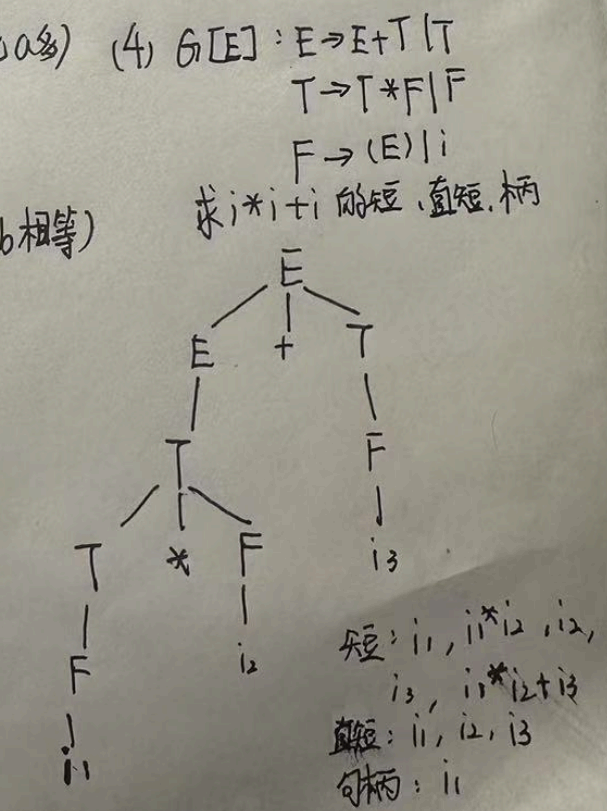 a多) (4) G[E]: E→E+T|T
T→T*F|F
F→(E)|i
b相等) 求i*i+i的短、直短、柄
E
E + T
T F
T * F i3
F i2
i1
短: i1, i1*i2, i2,
i3, i1*i2+i3
直短: i1, i2, i3
句柄: i1